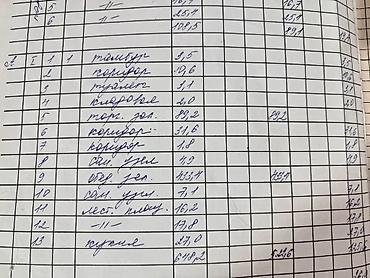 5 -"- 16,7 16,7
6 -"- 25,1 25,1
108,5 89,1
А I 1 1 тамбур 3,5
2 коридор 10,6
3 туалет 3,1
4 кладовая 2,0
5 торг. зал. 89,2 89,2
6 коридор 31,6 31,6
7 коридор 1,8 1,8
8 сан. узел 4,9 4,9
9 обед. зал. 433,4 433,4
10 сан. узл. 7,1
11 лест. площ. 16,2 16,2
12 -"- 17,8 17,8
13 кухня 27,0 27,0
648,2 522,6 125,6